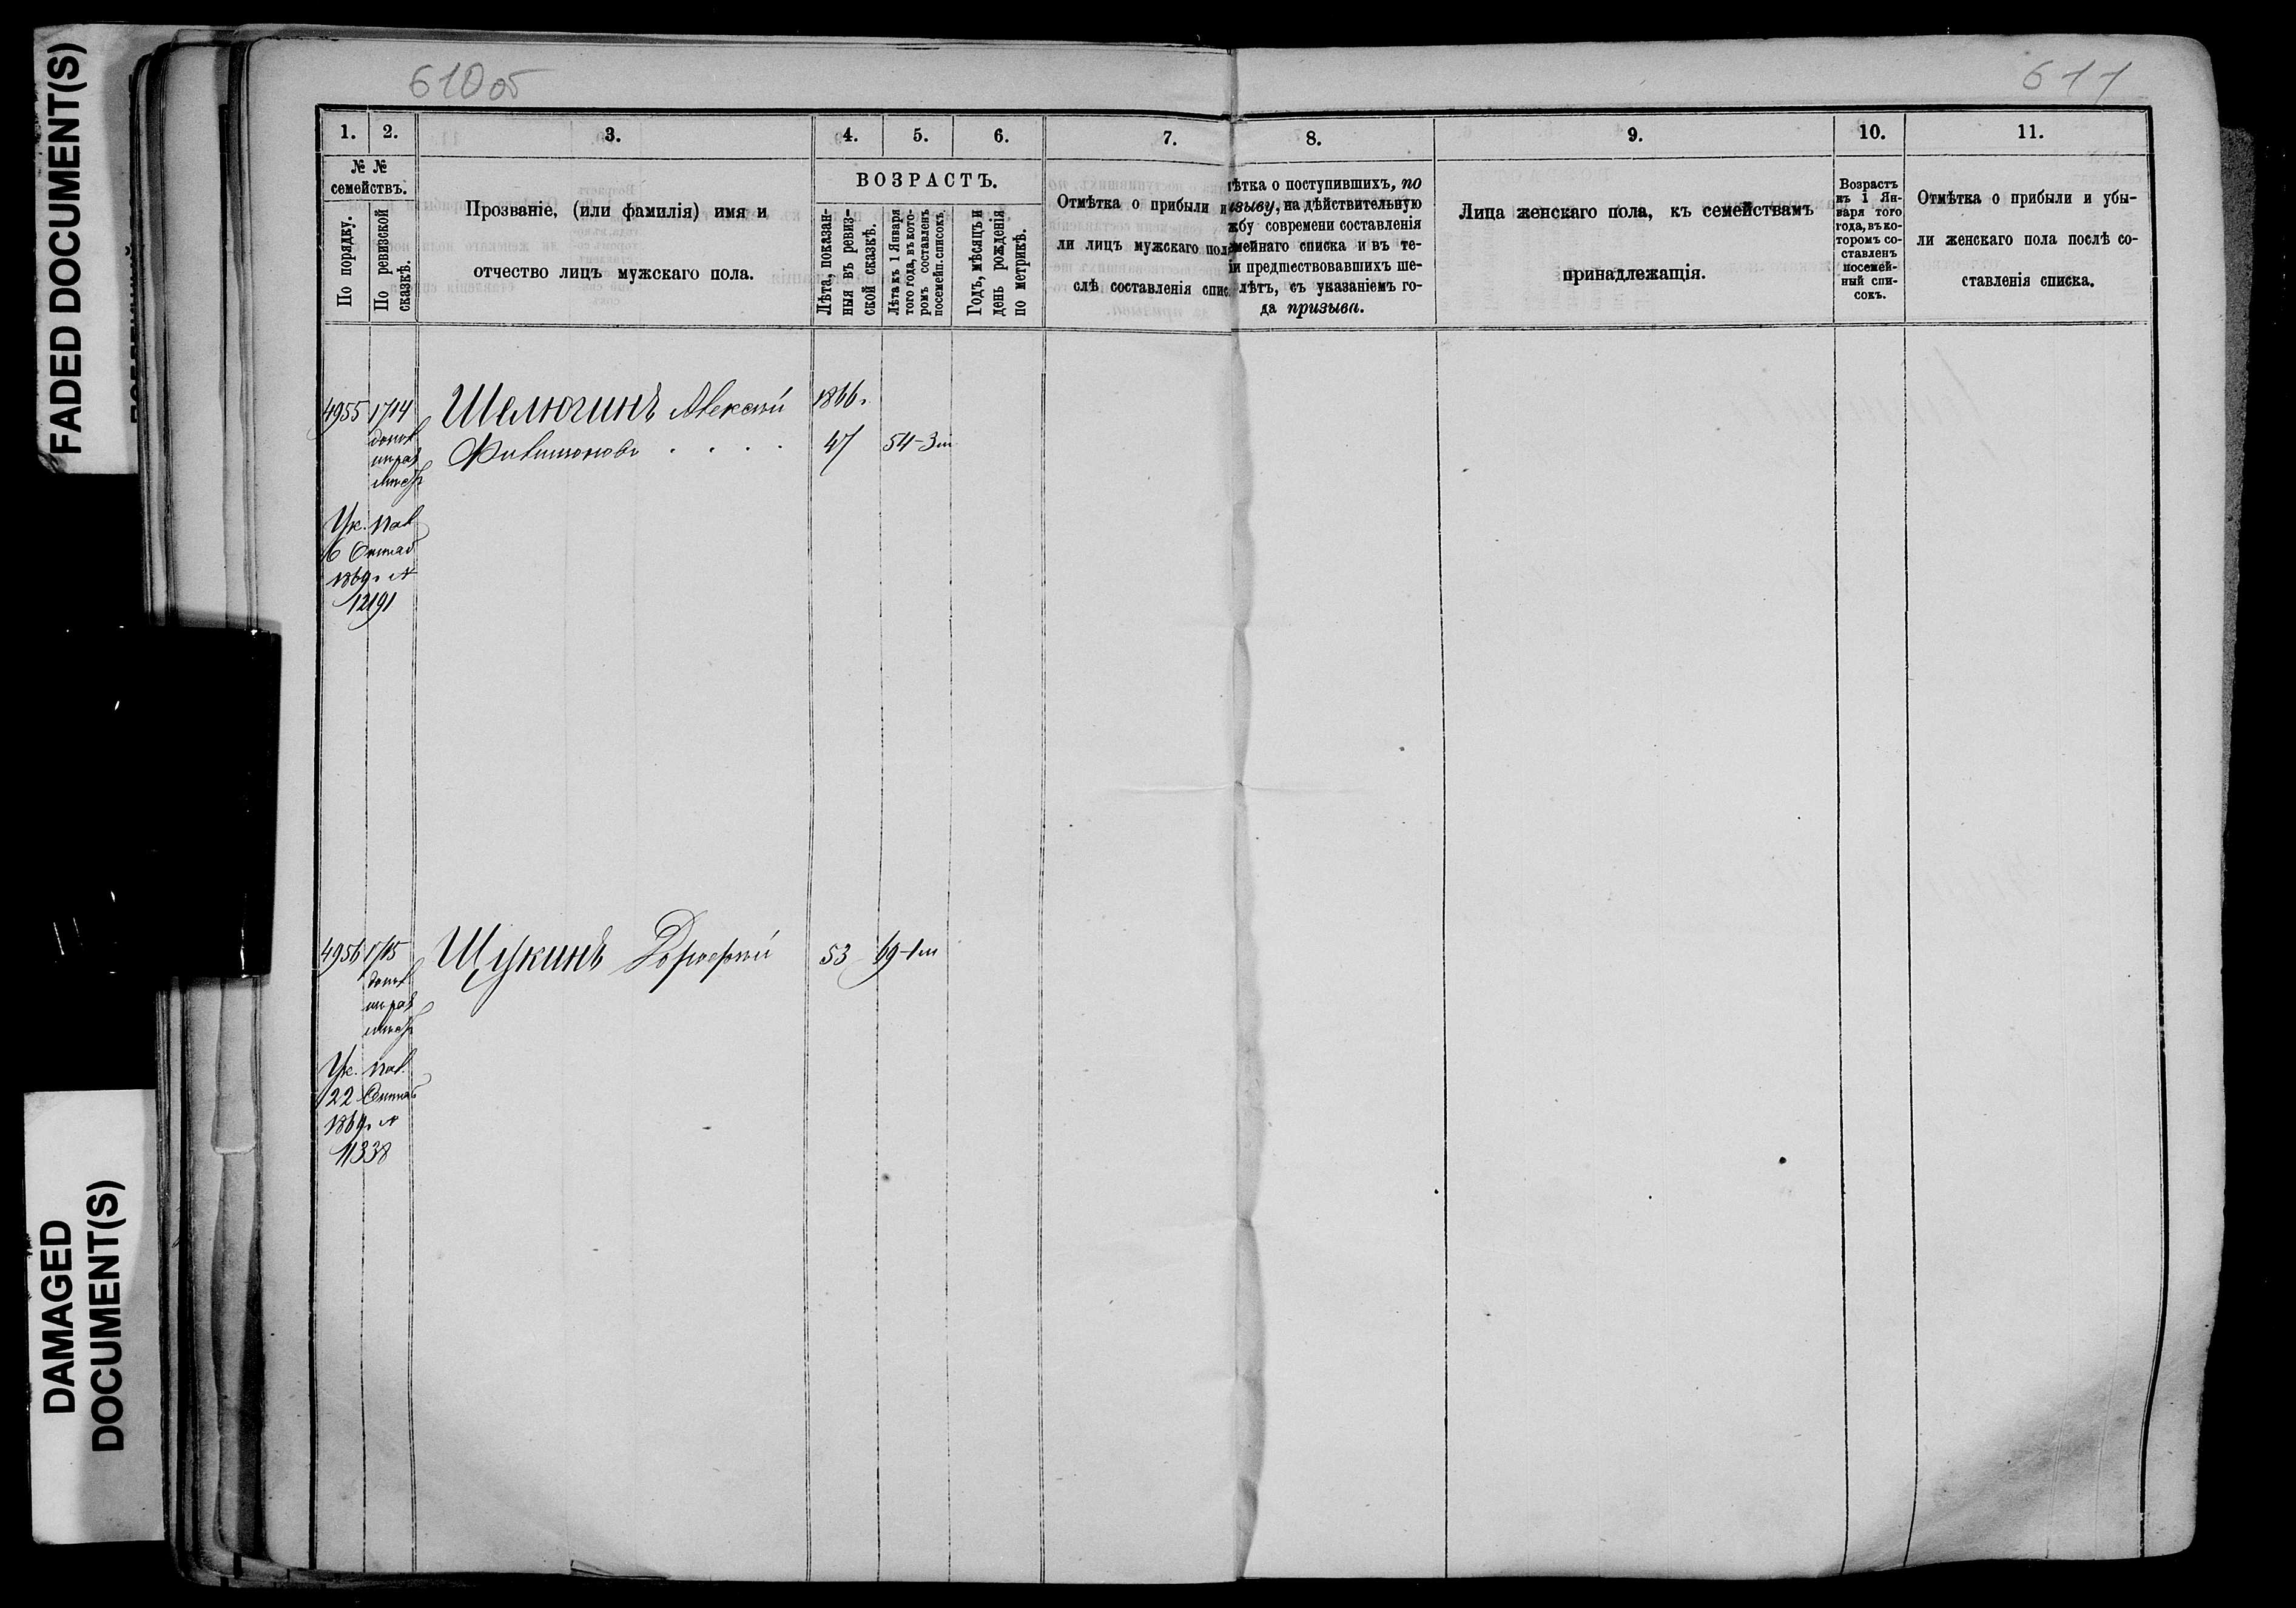 FADED DOCUMENT(S)
DAMAGED
DOCUMENT(S)
610об
611
1. 2. 3. 4. 5. 6. 7. 8. 9. 10. 11.
№ №
семействъ.
По порядку.
По ревизской
сказкѣ.
Прозваніе, (или фамилія) имя и
отчество лицъ мужскаго пола.
ВОЗРАСТЪ.
Лѣта, показан-
ныя въ ревиз-
ской сказкѣ.
Лѣта къ 1 Января
того года, въ кото-
ромъ составленъ
посемейн. списокъ.
Годъ, мѣсяцъ и
день рожденія
по метрикѣ.
Отмѣтка о прибыли и
ли лицъ мужскаго пола
слѣ составленія спис
ѣтка о поступившихъ, по
изыву, на дѣйствительную
жбу современи составленія
емейнаго списка и въ те-
іи предшествовавшихъ ше-
лѣтъ, съ указаніемъ го-
да призыва.
Лица женскаго пола, къ семействамъ
принадлежащія.
Возрастъ
къ 1 Ян-
варя того
года, въ ко-
торомъ со-
ставленъ
посемей-
ный спи-
сокъ.
Отмѣтка о прибыли и убы-
ли женскаго пола послѣ со-
ставленія списка.
4955 1714 Шелюгинъ Алексѣй 1866г.
допол
Филимоновъ 47 54-3м
Ук. Пал
6 Октяб
1869г. №
12191
4956 1715 Щукинъ Дорофѣй 53 69-1м
допол
Ук. Пал.
22 Октяб
1869г. №
11338